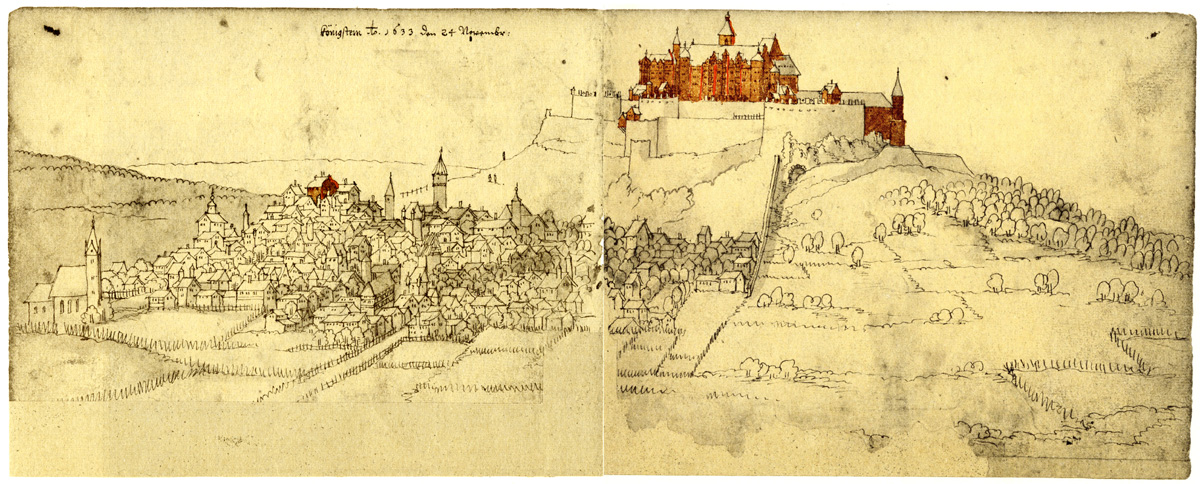 Königstein A̶o̶. 1633 den 24 Novembr: